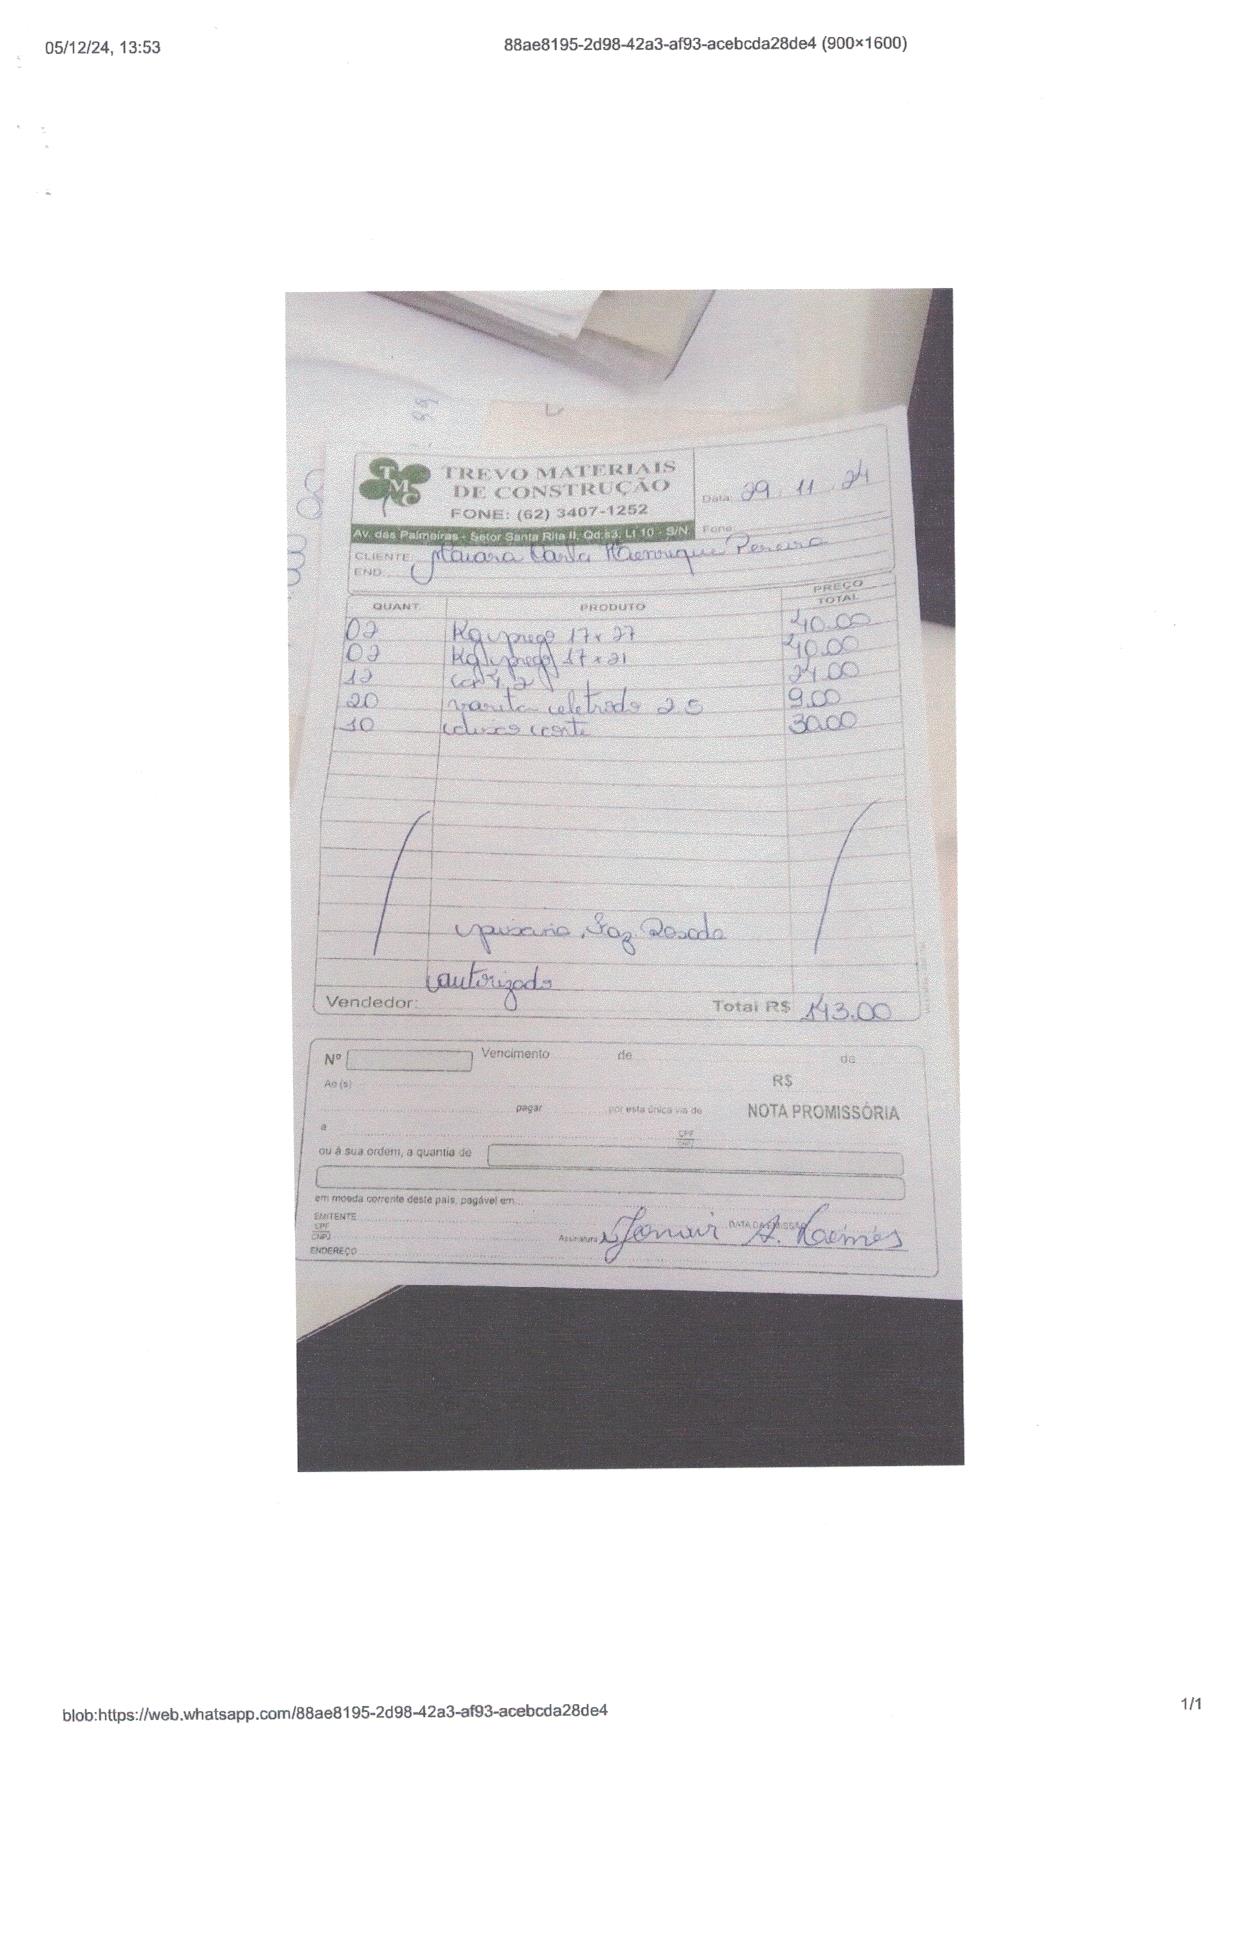 05/12/24, 13:53
88ae8195-2d98-42a3-af93-acebcda28de4 (900×1600)
TMC
TREVO MATERIAIS
DE CONSTRUÇÃO
FONE: (62) 3407-1252
Av. das Palmeiras - Setor Santa Rita II, Qd.63, Lt 10 - S/N
Data: 29.11.24
Fone
CLIENTE: Maiara Carla Henrique Pereira
END.
QUANT. PRODUTO PREÇO TOTAL
02 Kg prego 17x27 40.00
02 Kg prego 17x21 40.00
12 24.00
20 vareta eletrodo 2.5 9.00
10 disco corte 30.00
Faz. Rosada
autorizado
Vendedor: Total R$ 143.00
Nº Vencimento de de
R$
Ao(s)
pagar por esta única via de NOTA PROMISSÓRIA
a CPF
CNPJ
ou à sua ordem, a quantia de
em moeda corrente deste país, pagável em
EMITENTE DATA DA EMISSÃO
CPF
CNPJ
Assinatura
ENDEREÇO
blob:https://web.whatsapp.com/88ae8195-2d98-42a3-af93-acebcda28de4
1/1